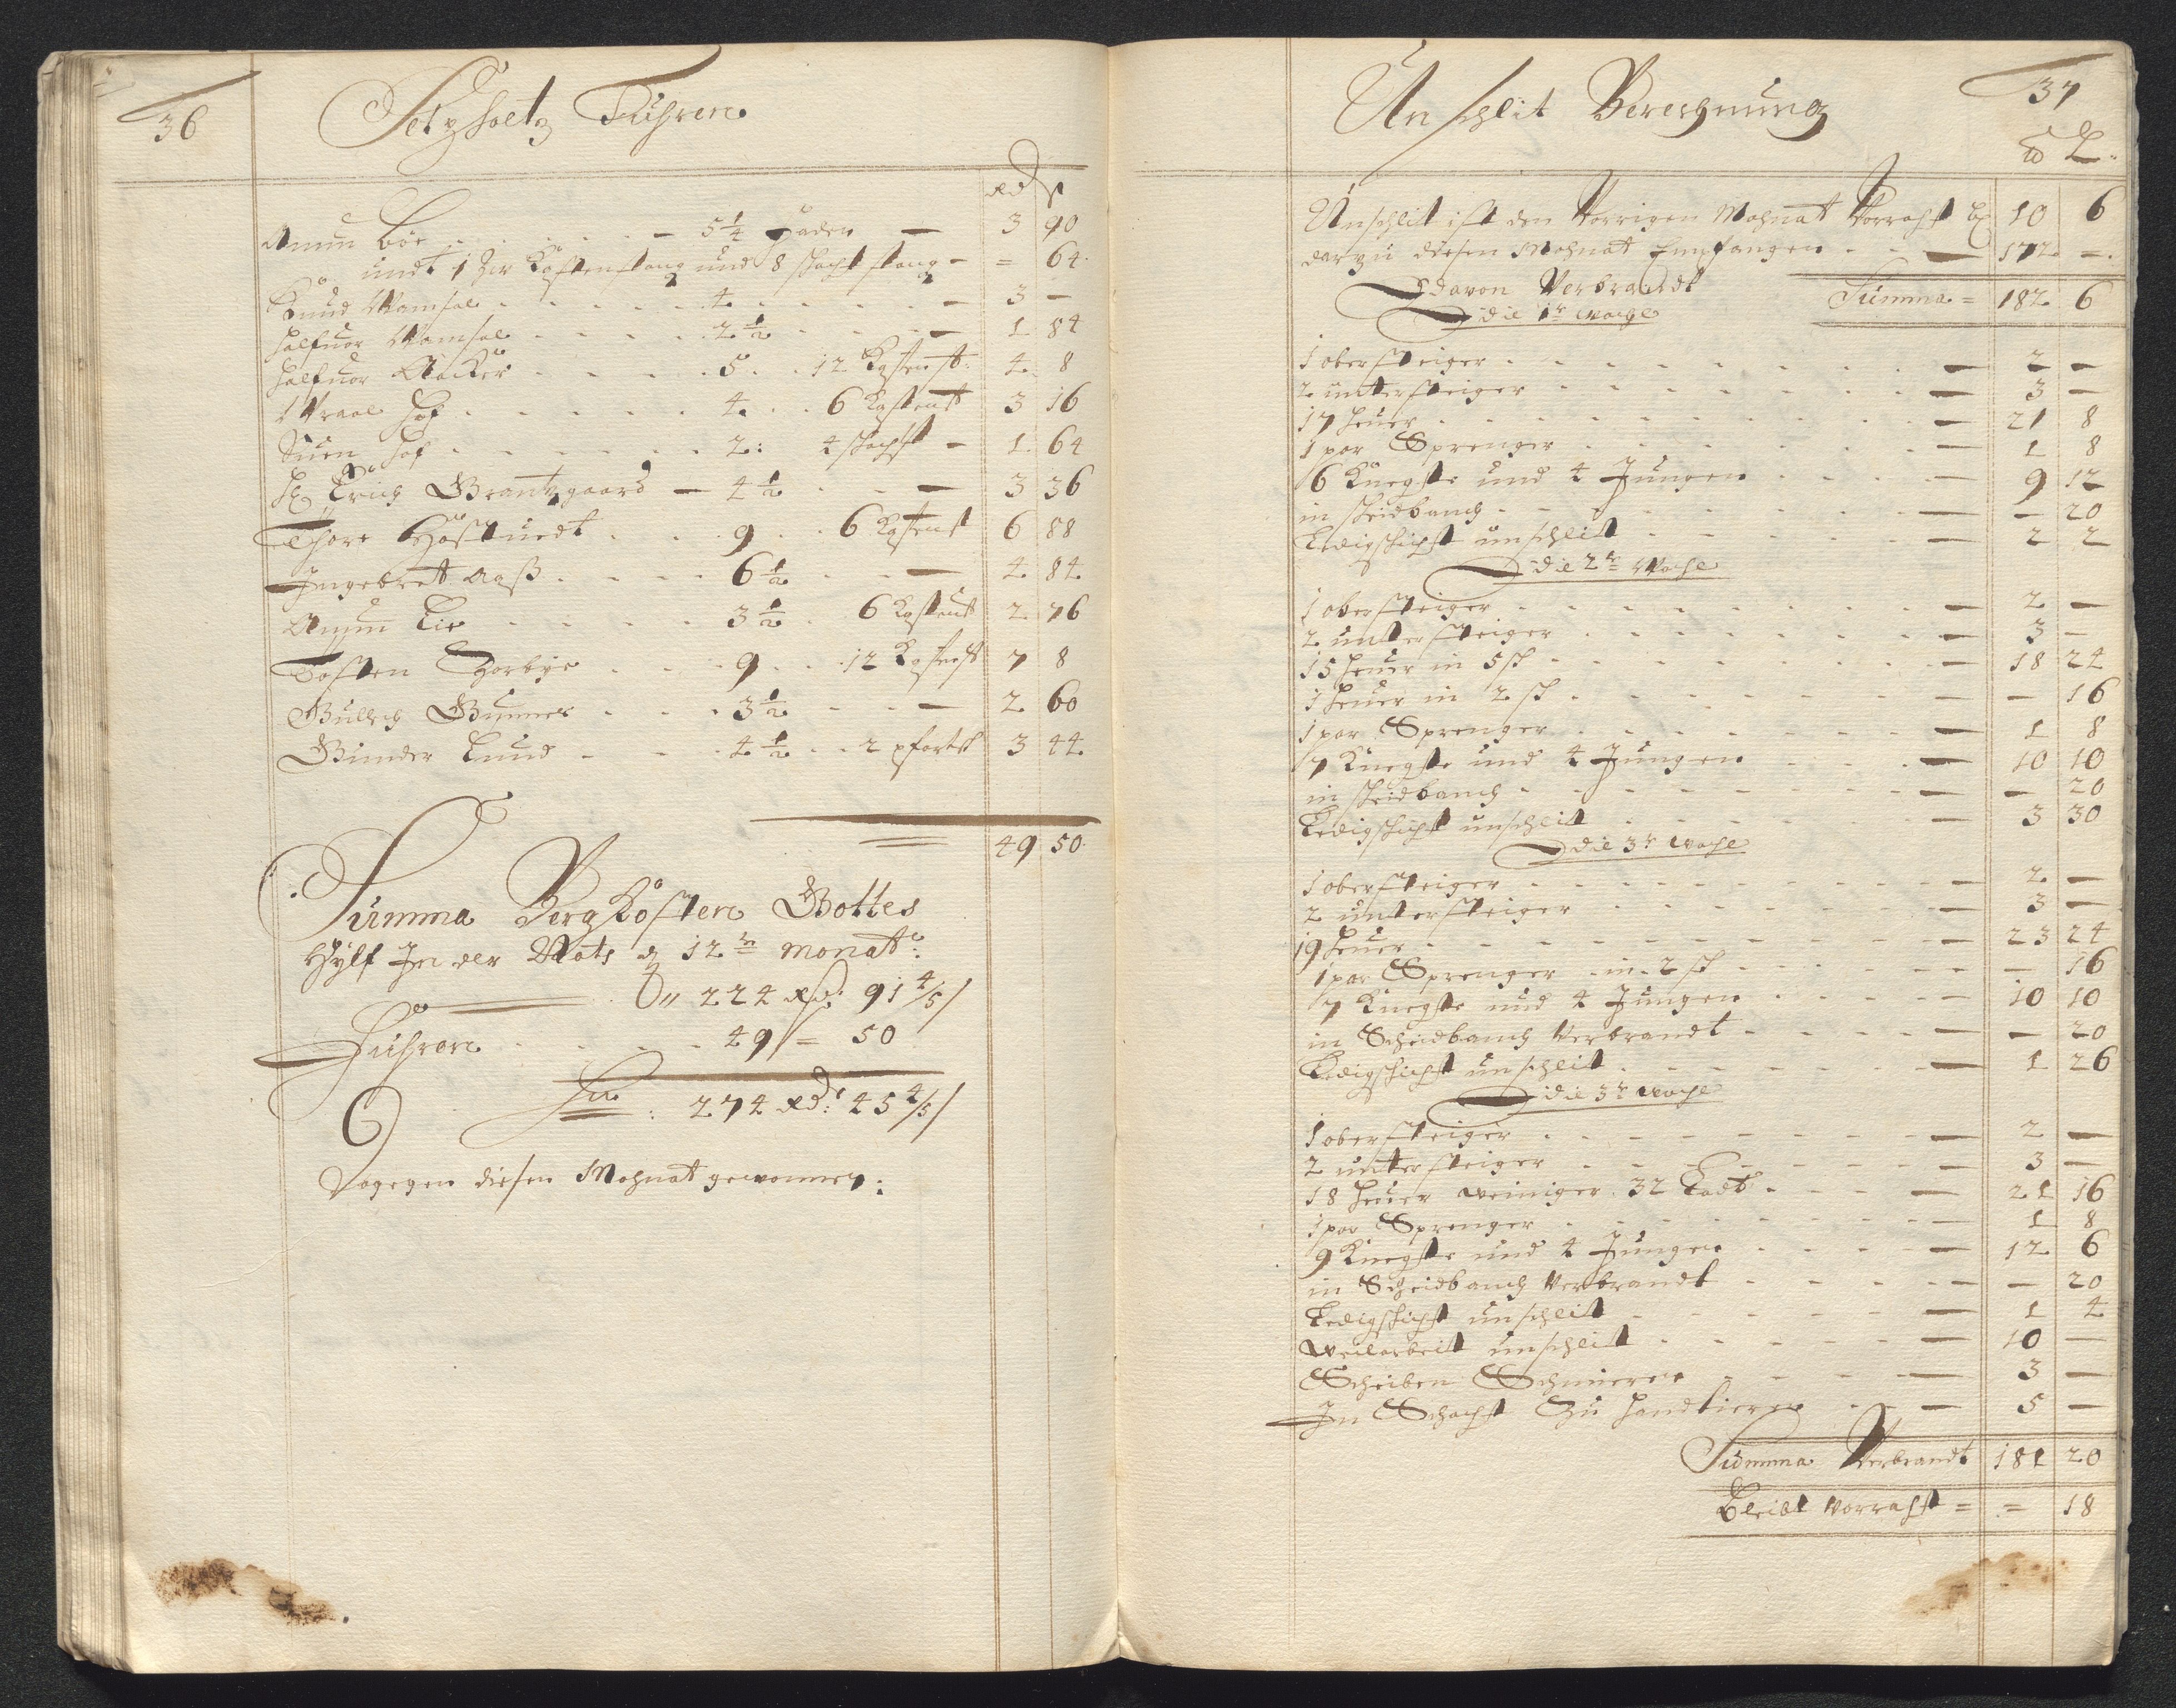 36
Setzholtz Führen
Rd ß
Amun Böe - 5 1/4 Fader - 3 90
undt 1 Zir Kastenstang und 8 schacht stang - = 64
Knud Wamsal - 4 - 3 -
Halfuor Wamsal - 2 1/2 - 1 84
Halfuor Aacker - 5 - 12 Kastenst: 4 8
Wraal Hof - 4 - 6 Kastenst 3 16
Suen Hof - 2: 4 schacht - 1 64
H: Erich Grantzgaard - 4 1/2 - 3 36
Thore - 9 - 6 Kastenst 6 88
Ingebret Aaß - 6 1/2 - 4 84
Amun Lie - 3 1/2 - 6 Kastenst 2 76
Tosten Korbye - 9 - 12 Kastenst 7 8
Gullich Gunnes - 3 1/2 - 2 60
Gunder Lund - 4 1/2 - 2 3 44
= 49 50
Summa BergKosten Gottes
Hylf In der Noht d 12te Monat:
224 Rd: 91 4/5 /
Führen - 49 = 50
Sa: 274 Rd: 45 4/5 /
Dagegen diesen Mohnat gewonnen:
37
Unschlit Berechnung
℔ L
Unschlit ist den Vorrigen Mohnat Vorrahtt 10 6
darzu diesen Mohnat Empfangen - 172 -
Davon Verbrandt Summa = 182 6
die 1te Woche
1 obersteiger - 2 -
2 untersteiger - 3 -
17 Heuer - 21 8
1 par Sprenger - 1 8
6 Knechte und 4 Jungen - 9 12
in scheidbanch - - 20
Ledigschicht unschlit - 2 2
die 2te Woche
1 obersteiger - 2 -
2 untersteiger - 3 -
15 Heuer in 5 sch - 18 24
1 Heuer in 2 sch - - 16
1 par Sprenger - 1 8
7 Knechte und 4 Jungen - 10 10
in scheidbanch - - 20
Ledigschicht unschlit - 3 30
die 3te Woche
1 obersteiger - 2 -
2 untersteiger - 3 -
19 Heuer - 23 24
1 par Sprenger in 2 sch - - 16
7 Knechte und 4 Jungen - 10 10
in Scheidbanch Verbrandt - - 20
Ledigschicht unschlit - 1 26
die 3te Woche
1 obersteiger - 2 -
2 untersteiger - 3 -
18 Heuer weiniger 32 Lodt - 21 16
1 par Sprenger - 1 8
9 Knechte und 4 Jungen - 12 6
in Scheidbanch Verbrandt - - 20
Ledigschicht unschlit - 1 4
Weilarbeit unschlit - 10 -
Scheiben Schmieren - 3 -
In Schacht Zu handtieren - 5 -
Summa Verbrandt 181 20
Bleibt Vorrahtt = = 18